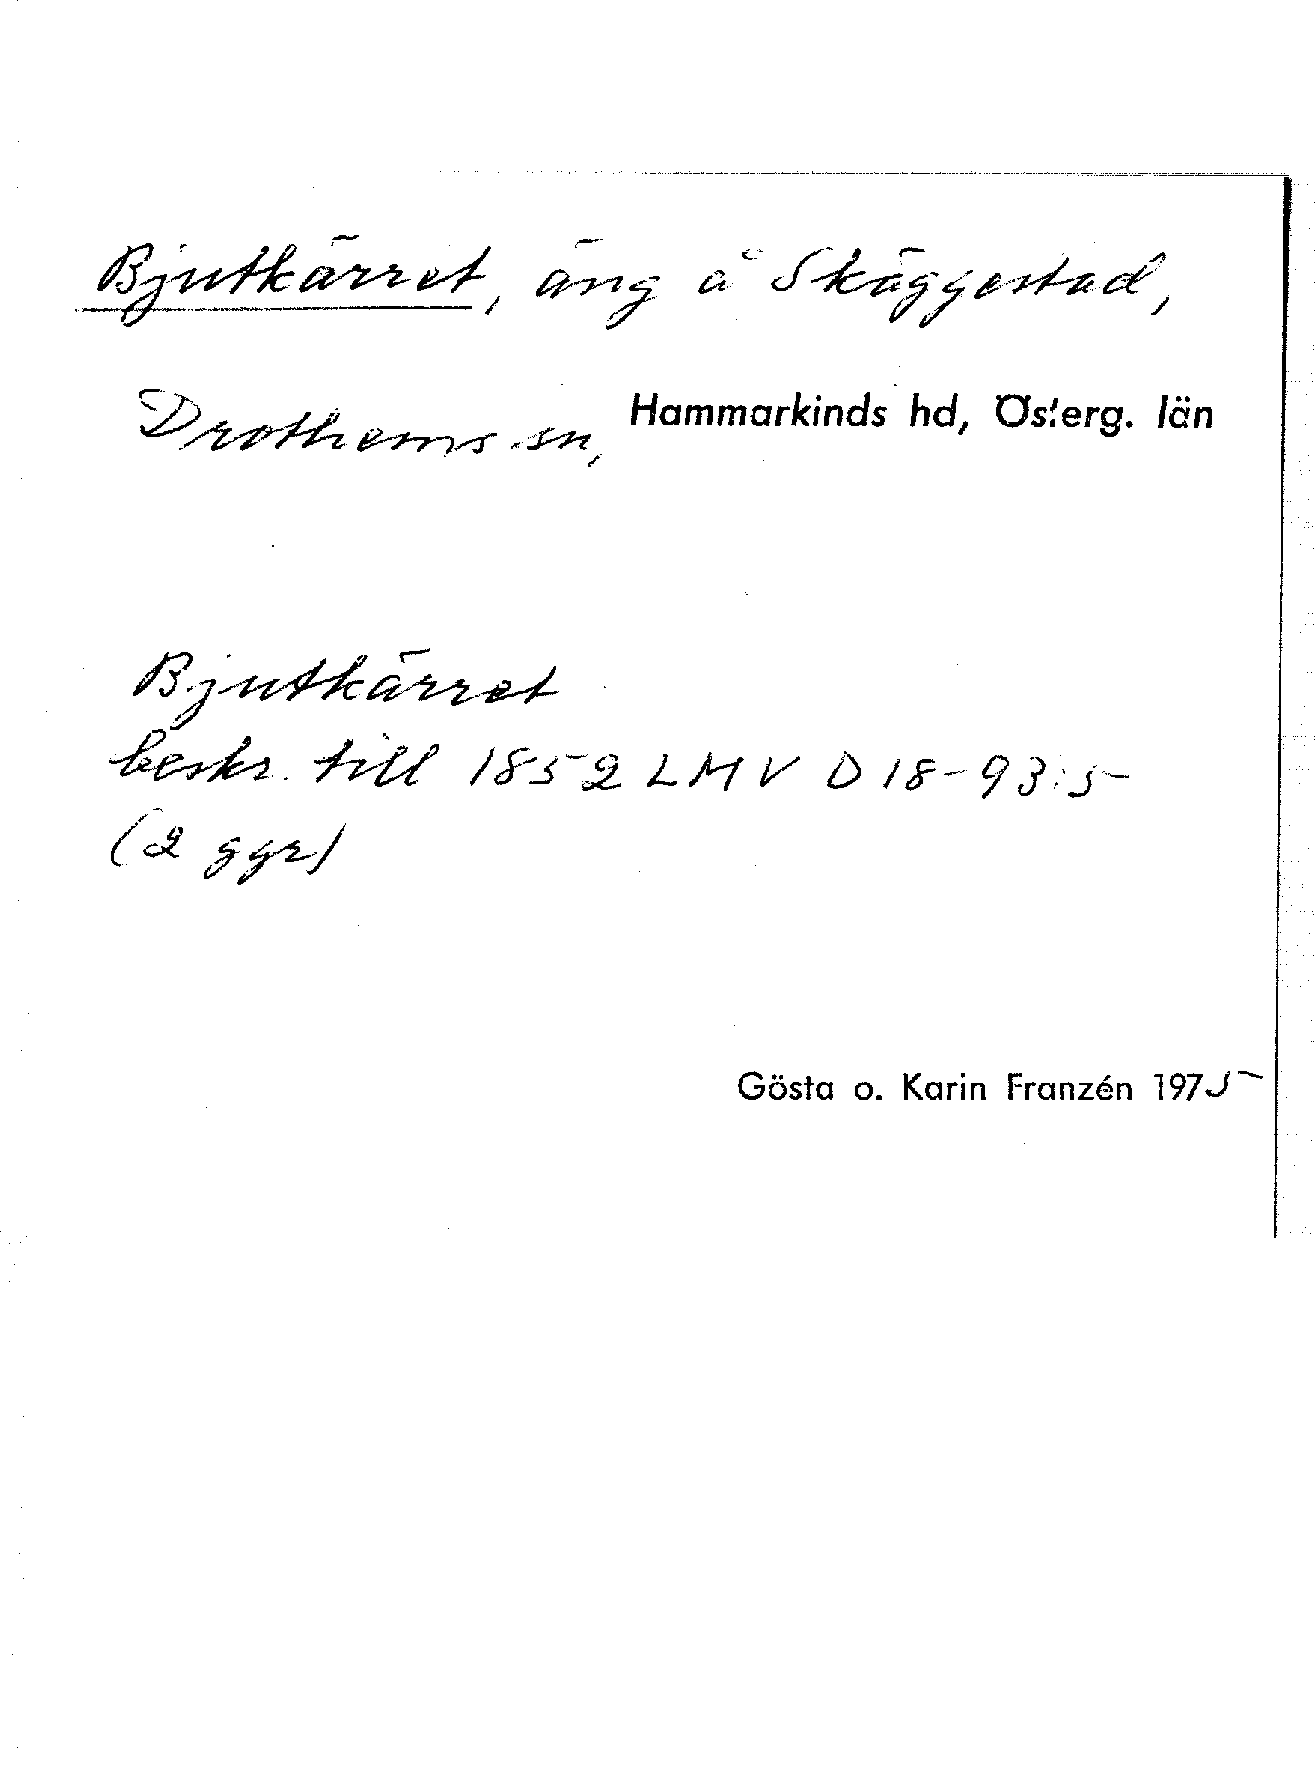 Bjutkärret, äng å Skäggestad,
Drothems sn, Hammarkinds hd, Österg. län
Bjutkärret
beskr. till 1852 LMV D 18-93:5
(2 ggr)
Gösta o. Karin Franzén 1975